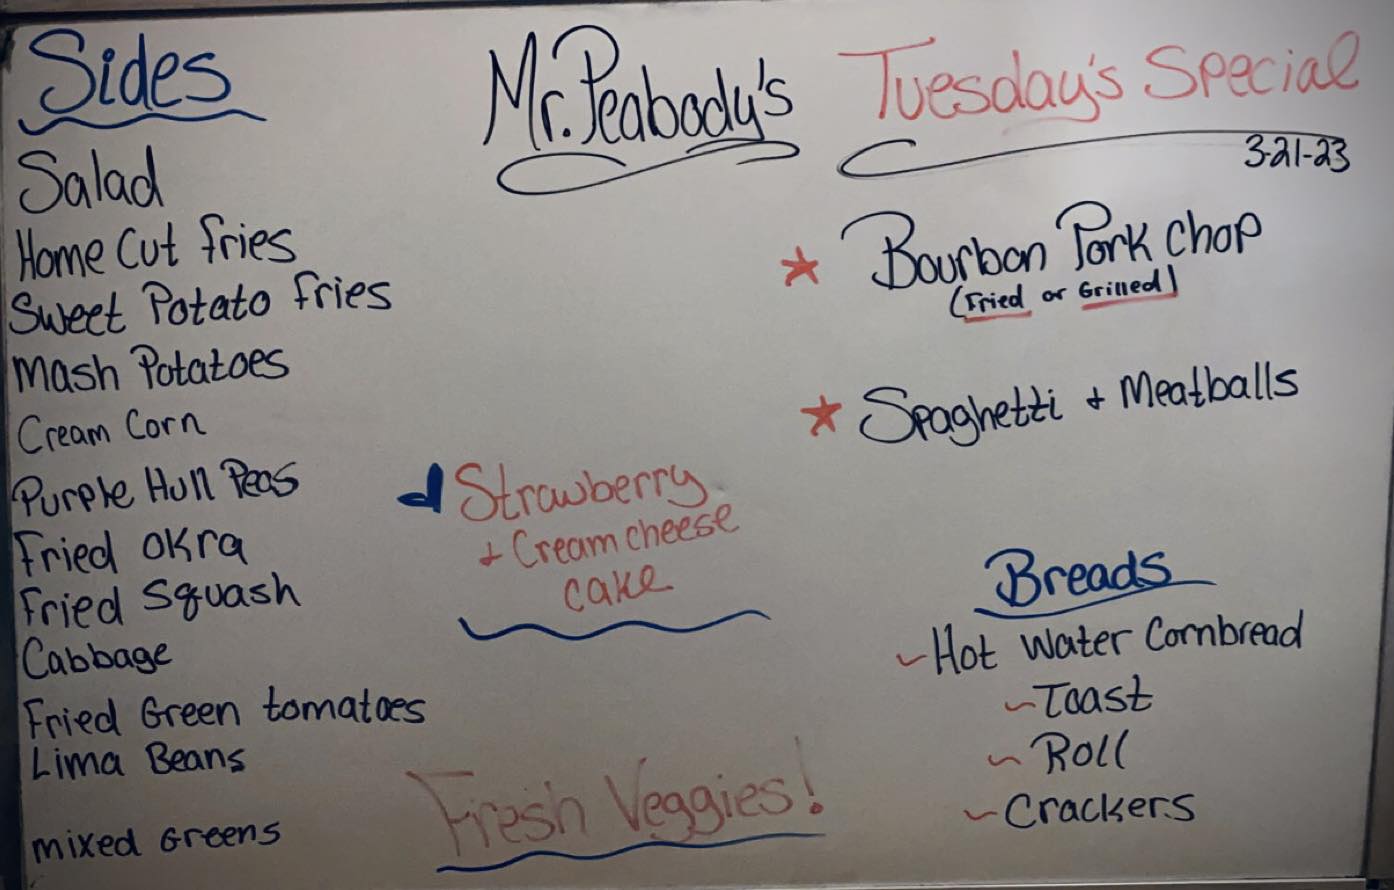 Sides
Salad
Home Cut fries
Sweet Potato fries
Mash Potatoes
Cream Corn
Purple Hull Peas
Fried okra
Fried Squash
Cabbage
Fried Green tomatoes
Lima Beans
mixed Greens
Mr. Peabody's
Strawberry
+ Cream cheese
cake
Fresh Veggies!
Tuesday's Special
3-21-23
Bourbon Pork Chop
(Fried or Grilled)
Spaghetti + Meatballs
Breads
Hot Water Cornbread
Toast
Roll
Crackers